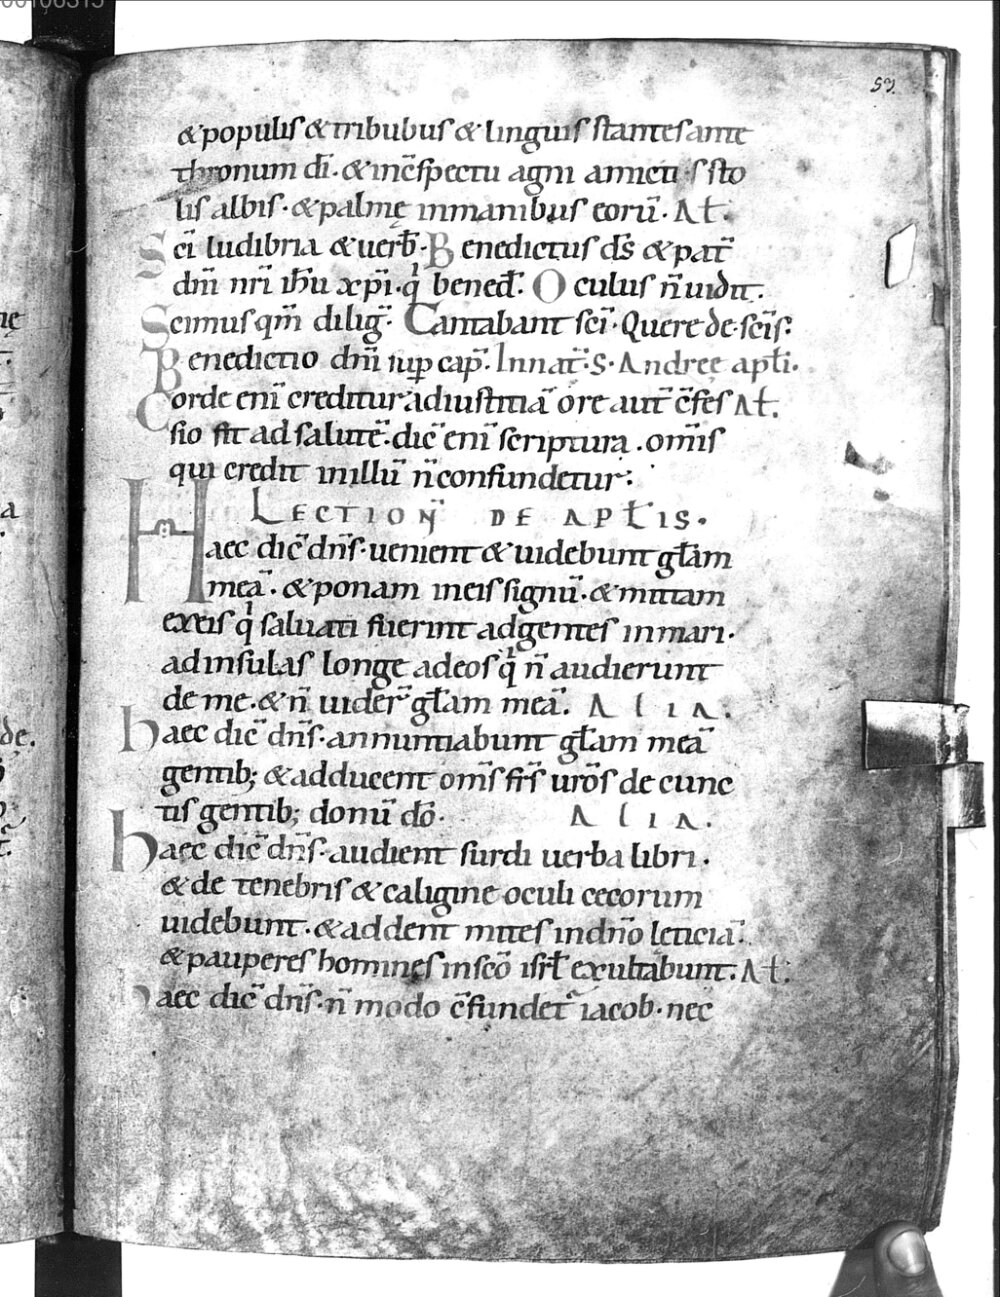 53.
& populis & tribubus & linguis stantes ante
thronum dī. & incspectu agni amicti sto
lis albis. & palmę inmanibus eorū. Aƚ.
Scī ludibria & uerb̄. Benedictus ds̄ & pat̄
dnī nrī ihū xpī. q bened̄. Oculus n̄ uidit.
Scimus qm̄ diliḡ. Cantabant scī. Quere de scīs.
Benedictio dnī sup cap̄. In nat̄. S. Andreę aptī.
Corde enī creditur ad iustitiā ore aut̄ c̄fes Aƚ.
sio fit ad salutē. dic̄ enī scriptura. om̄is
qui credit in illū n̄ confundetur.
LECTION DE APTIS.
Haec dic̄ dn̄s. uenient & uidebunt gƚam
meā. & ponam in eis signū. & mittam
ex eis q saluati fuerint ad gentes in mari.
ad insulas longe ad eos q n̄ audierunt
de me. & n̄ uider̄ gƚam meā. ALIA.
haec dic̄ dn̄s. annuntiabunt gƚam meā
gentib; & adducent om̄s frs̄ urōs de cunc
tis gentib; donū dō. ALIA.
haec dic̄ dn̄s. audient surdi uerba libri.
& de tenebris & caligine oculi cecorum
uidebunt. & addent mites in dn̄o leticiā.
& pauperes homines in scō isrƚ exultabunt. Aƚ.
haec dic̄ dn̄s. n̄ modo c̄fundet̄ iacob. nec